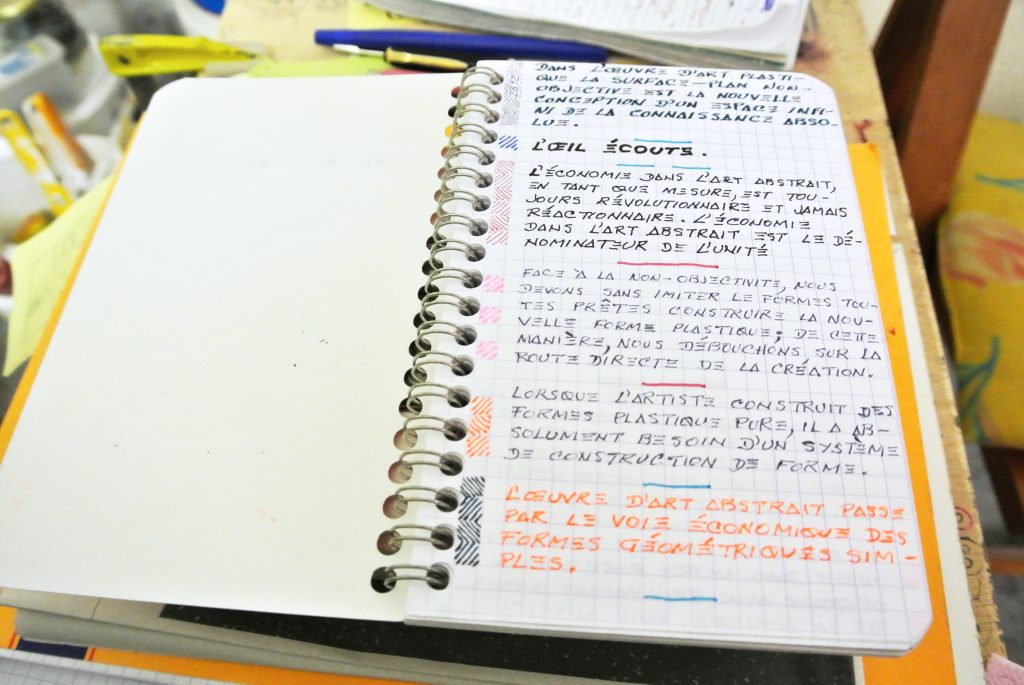 DANS L'ŒUVRE D'ART PLASTI-
QUE LA SURFACE-PLAN NON-
OBJECTIVE EST LA NOUVELLE
CONCEPTION D'UN ESPACE INFI-
NI DE LA CONNAISSANCE ABSO-
LUE.
L'ŒIL ÉCOUTS.
L'ÉCONOMIE DANS L'ART ABSTRAIT,
EN TANT QUE MESURE, EST TOU-
JOURS RÉVOLUTIONNAIRE ET JAMAIS
RÉACTIONNAIRE. L'ÉCONOMIE
DANS L'ART ABSTRAIT EST LE DÉ-
NOMINATEUR DE L'UNITÉ
FACE À LA NON-OBJECTIVITE, NOUS
DEVONS SANS IMITER LE FORMES TOU-
TES PRÊTES CONSTRUIRE LA NOU-
VELLE FORME PLASTIQUE; DE CETTE
MANIÈRE, NOUS DÉBOUCHONS SUR LA
ROUTE DIRECTE DE LA CRÉATION.
LORSQUE L'ARTISTE CONSTRUIT DES
FORMES PLASTIQUE PURE, IL A AB-
SOLUMENT BESOIN D'UN SYSTÈME
DE CONSTRUCTION DE FORME.
L'ŒUVRE D'ART ABSTRAIT PASSE
PAR LE VOIE ÉCONOMIQUE DES
FORMES GÉOMÉTRIQUES SIM-
PLES.